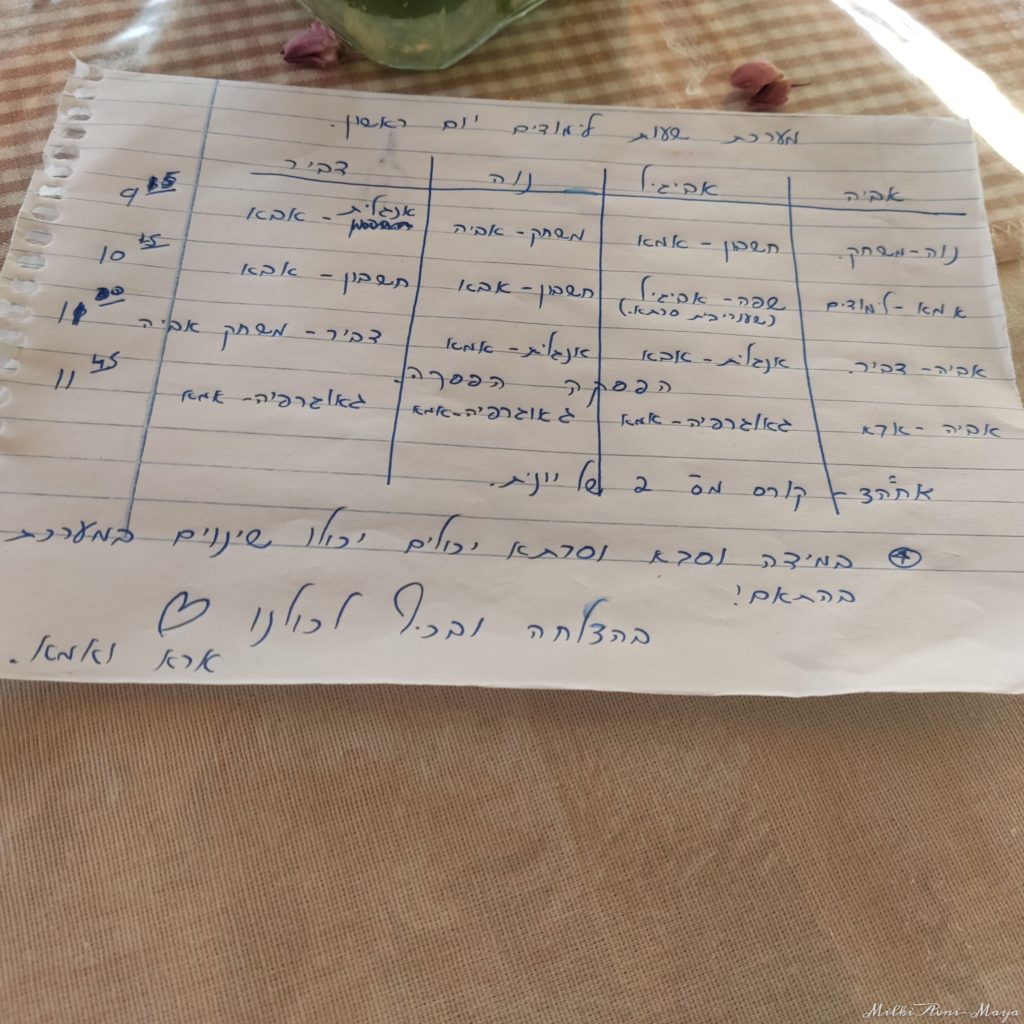 מערכת שעות לימודים יום ראשון.
אביה אביגיל נוה דביר
נוה-משחק. חשבון-אמא משחק-אביה אנגלית-אבא 9
אמא-לימודים שפה-אביגיל חשבון-אבא חשבון-אבא 10 45
אביה-דביר. אנגלית-אבא אנגלית-אמא דביר-משחק אביה 11 00
הפסקה הפסקה.
אביה-אבא גאוגרפיה-אמא גאוגרפיה-אמא גאוגרפיה-אמא 11 45
אחה"צ - קורס מס 2 של יוונית.
במידה וסבא וסבתא יכולים יכולו שינויים במערכת
בהתאם!
בהצלחה ובכיף לכולנו ♡
אבא ואמא.
Milki Roni-Maya